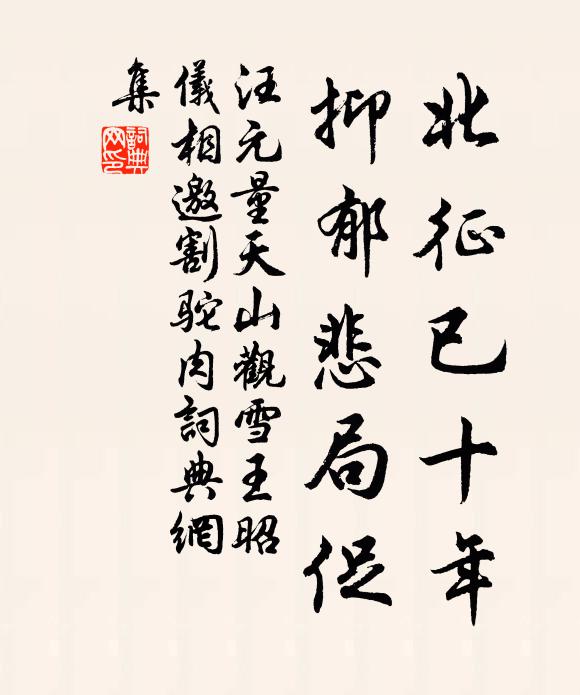 北征已十年
抑郁悲局促
汪元量天山觀雪王昭
儀相邀割駝肉詞典網
集
詞典
网印